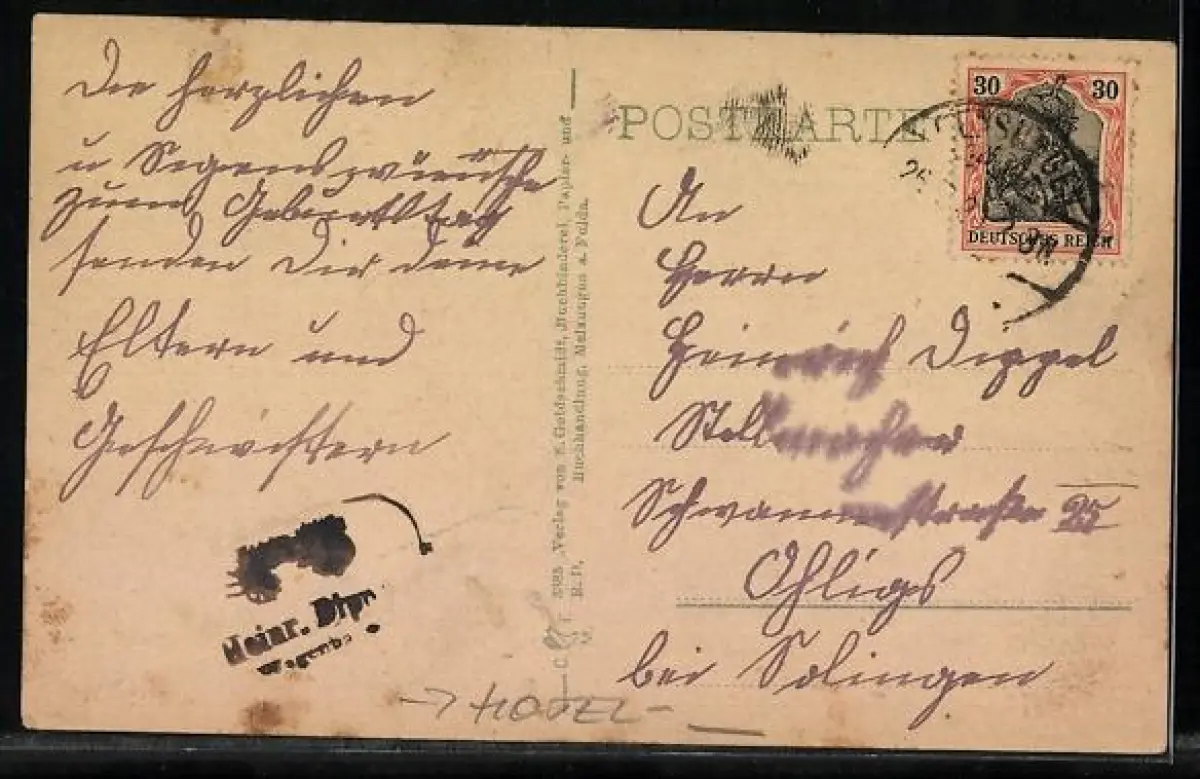 Die herzlichen
u Segenswünsche
zum Geburtstag
senden Dir deine
Eltern und
Geschwistern
Heinr.
Verlag von S. Goldschmidt, Buchbinderei, Papier- und
Buchhandlung, Melsungen a. Fulda.
POSTKARTE
30 30
DEUTSCHES REICH
An
Herrn
Heinrich Dippel
Stellmacher
Schwanenstraße 25
Ohligs
bei Solingen
HOTEL